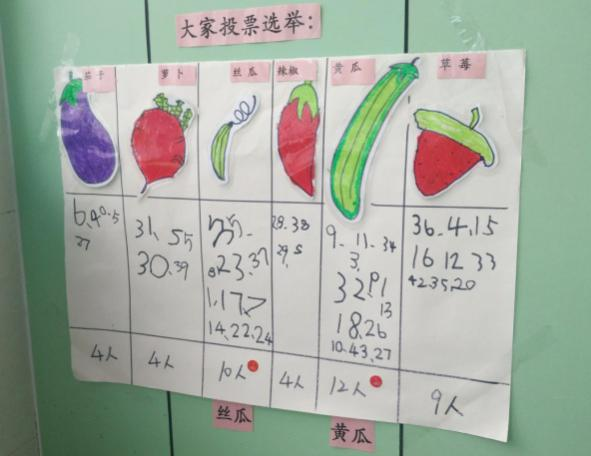 大家投票选举:
茄子 萝卜 丝瓜 辣椒 黄瓜 草莓
31、55
30、39
23、37
1、17、7
14、22、24
28、38
29、5
9、11、34
3、
32
13
18、26
10、43、27
36、4、15
16 12 33
42 35、20
4人 4人 10人 4人 12人 9人
丝瓜 黄瓜